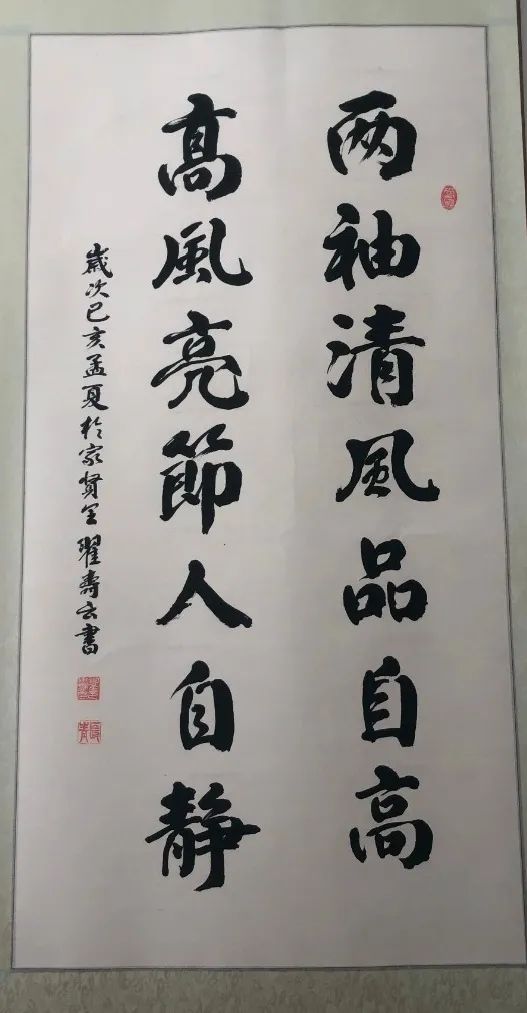 两袖清風品自高
高風亮節人自静
歲次己亥孟夏於家賢
翟壽云書